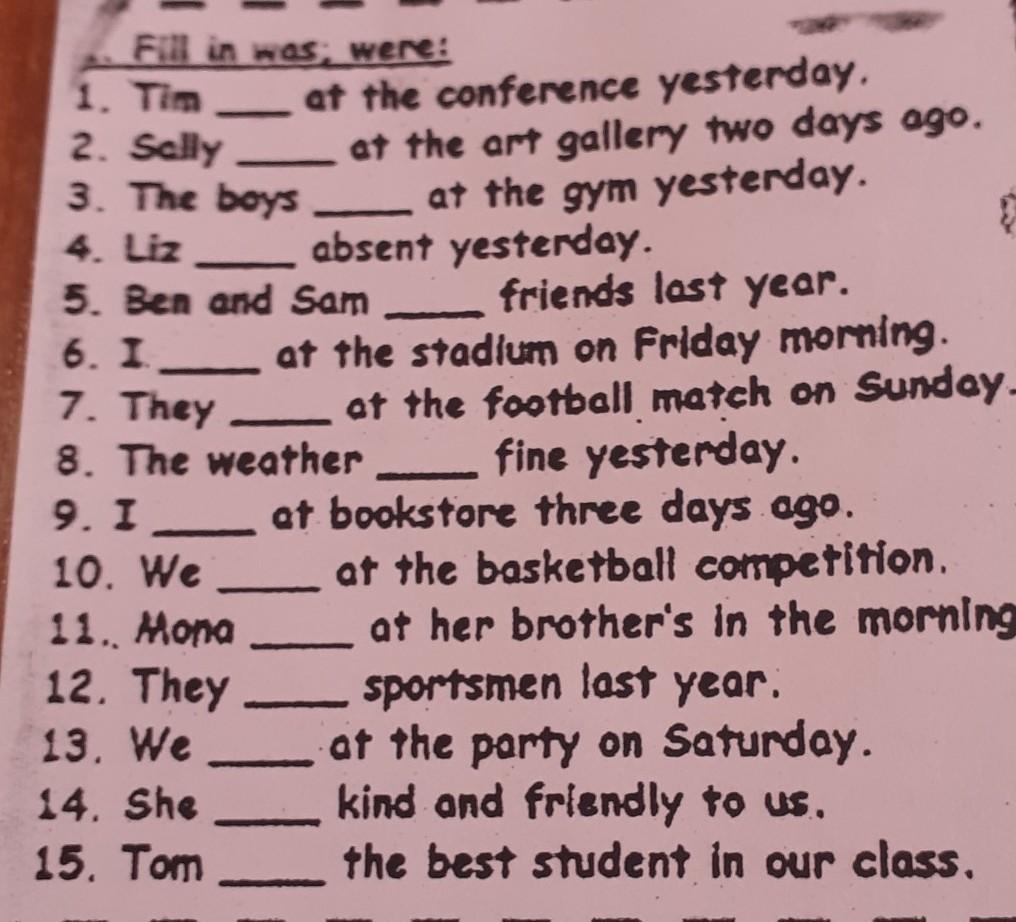 Fill in was; were:
1. Tim ____ at the conference yesterday.
2. Sally ____ at the art gallery two days ago.
3. The boys ____ at the gym yesterday.
4. Liz ____ absent yesterday.
5. Ben and Sam ____ friends last year.
6. I ____ at the stadium on Friday morning.
7. They ____ at the football match on Sunday.
8. The weather ____ fine yesterday.
9. I ____ at bookstore three days ago.
10. We ____ at the basketball competition.
11. Mona ____ at her brother's in the morning
12. They ____ sportsmen last year.
13. We ____ at the party on Saturday.
14. She ____ kind and friendly to us.
15. Tom ____ the best student in our class.